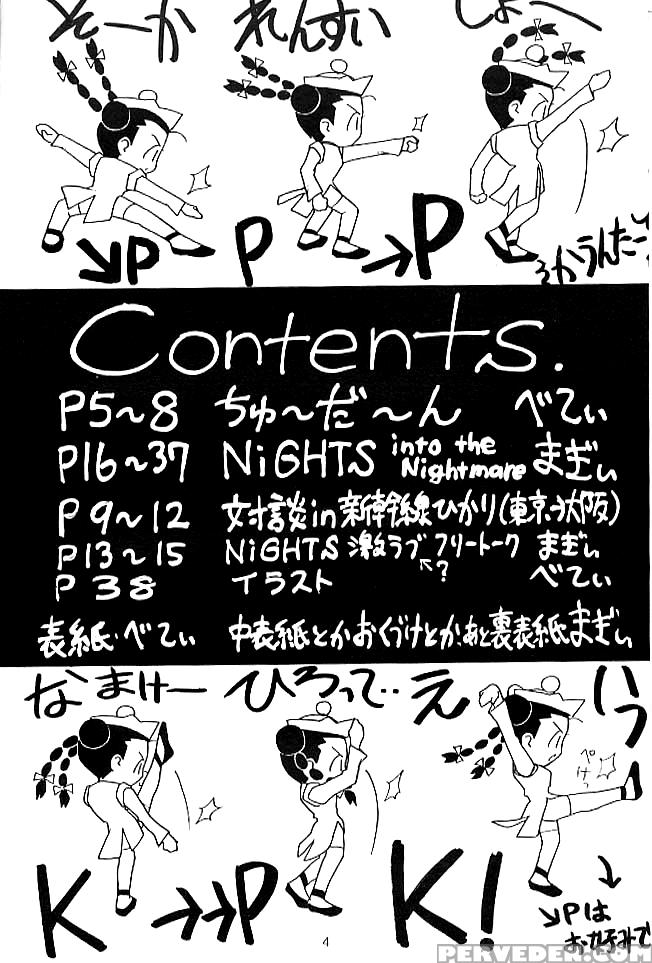 そーか れんすい しょー
↘P P →P
そかうんだー
Contents.
P5~8 ちゅ~だ~ん べてぃ
P16~37 NiGHTS into the Nightmare まぎぃ
P9~12 対談in新幹線ひかり(東京→大阪)
P13~15 NiGHTS 激ラブ フリートーク まぎぃ
←?
P38 イラスト べてぃ
表紙・べてぃ 中表紙とかおくづけとか、あと裏表紙まぎぃ
なまけー ひろって‥ えいっ
ぺけっ
K →→P K!
↓
↘Pは
お好みで
4
PERVEDEN.COM